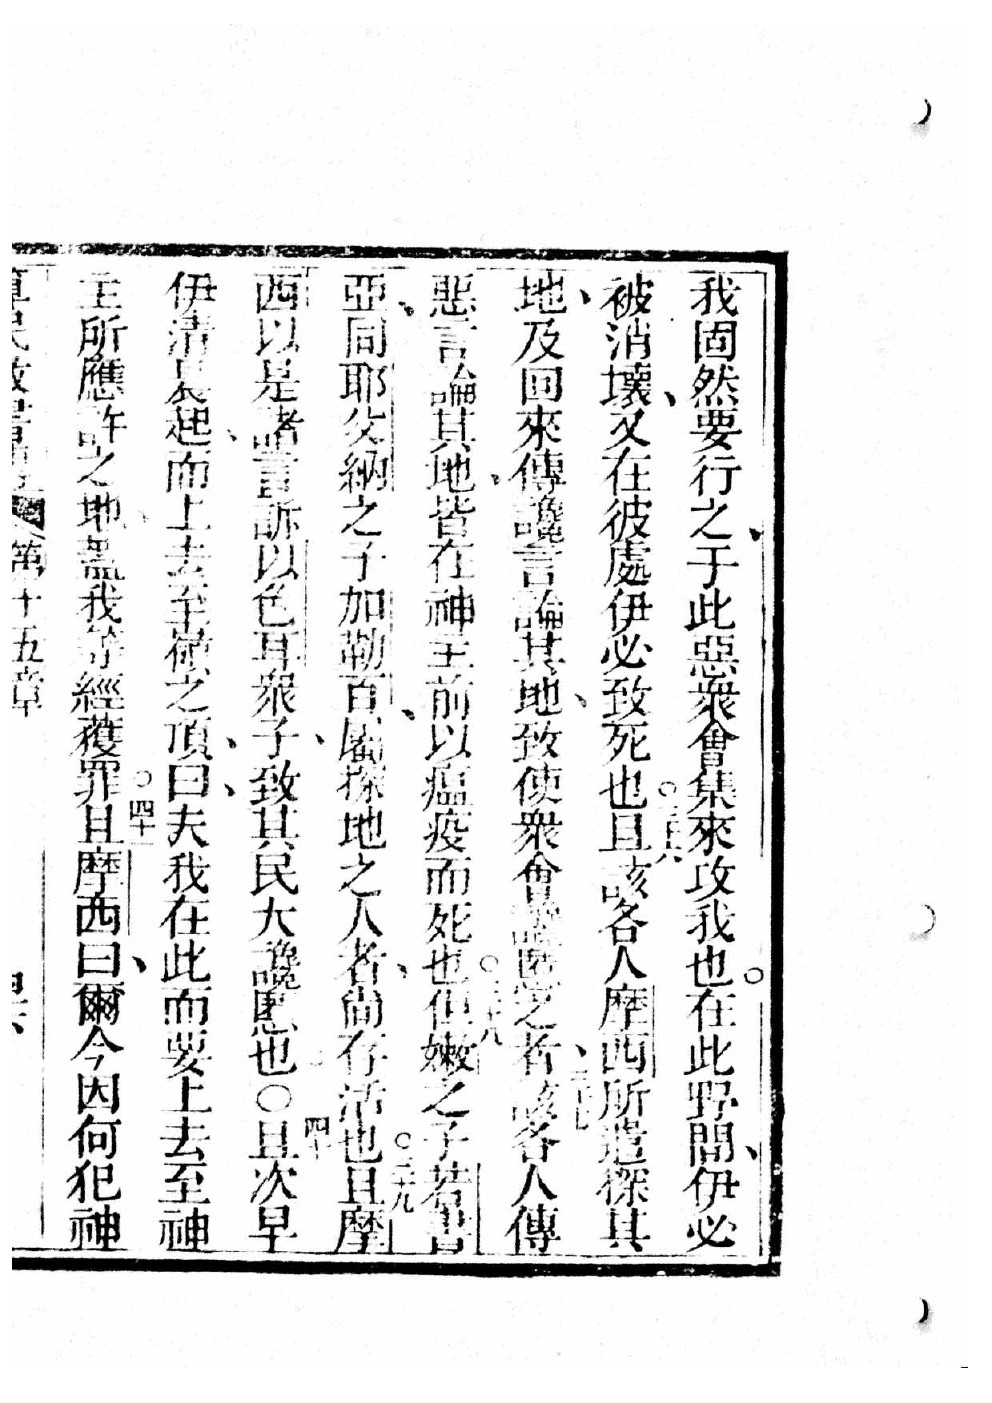 我固然要行之于此惡衆會集來攻我也。在此野間、伊必
被消壞、又在彼處伊必致死也○三十六且該各人摩西所遣探其
地、及回來傳讒言論其地、致使衆會讒慝之者、三十七該各人傳
惡言論其地、皆在神主前以瘟疫而死也○三十八但嫩之子若書
亞、同耶孚納之子加勒百、屬探地之人者、尚存活也○三十九且摩
西以是諸言訴以色耳衆子、致其民大讒慝也○四十且次早
伊清晨起、而上去至嶺之頂、曰、夫我在此而要上去至神
主所應許之地、蓋我等經獲罪○四十一且摩西曰、爾今因何犯神
算民數書 第十五章